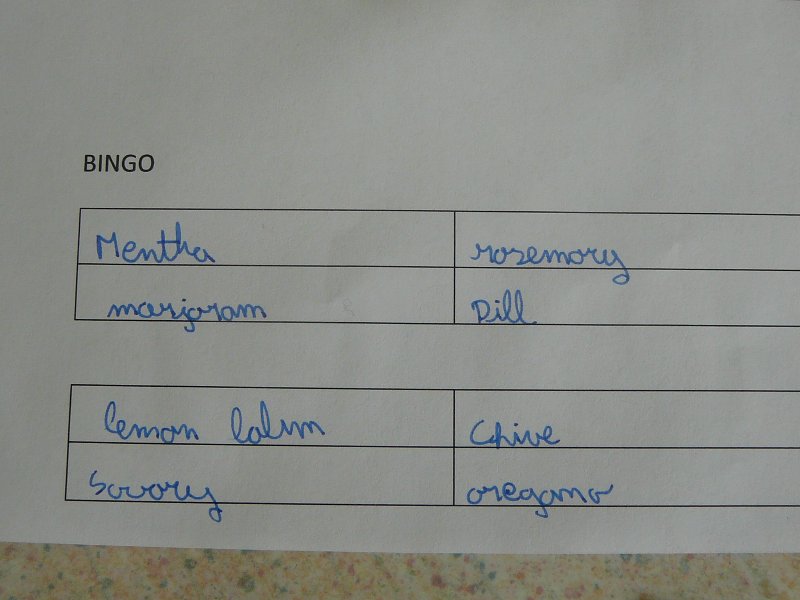 BINGO
Mentha rosemary
marjoram Dill
lemon balm Chive
Savory oregano